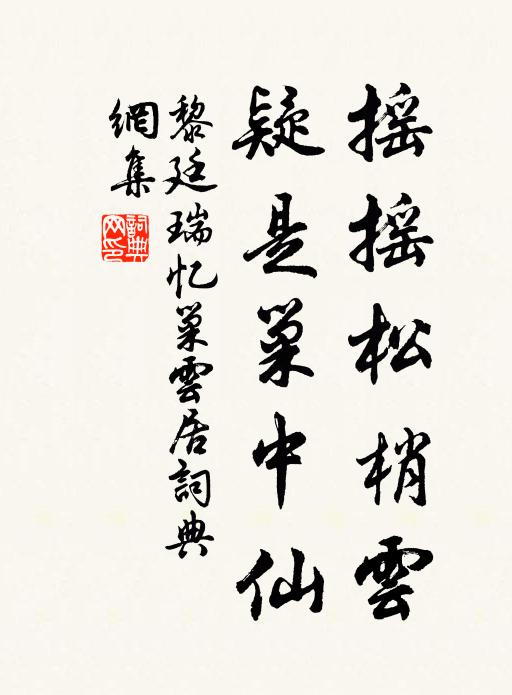 搖搖松梢雲
疑是巢中仙
黎廷瑞忆巢雲居詞典
網集
詞典
网印